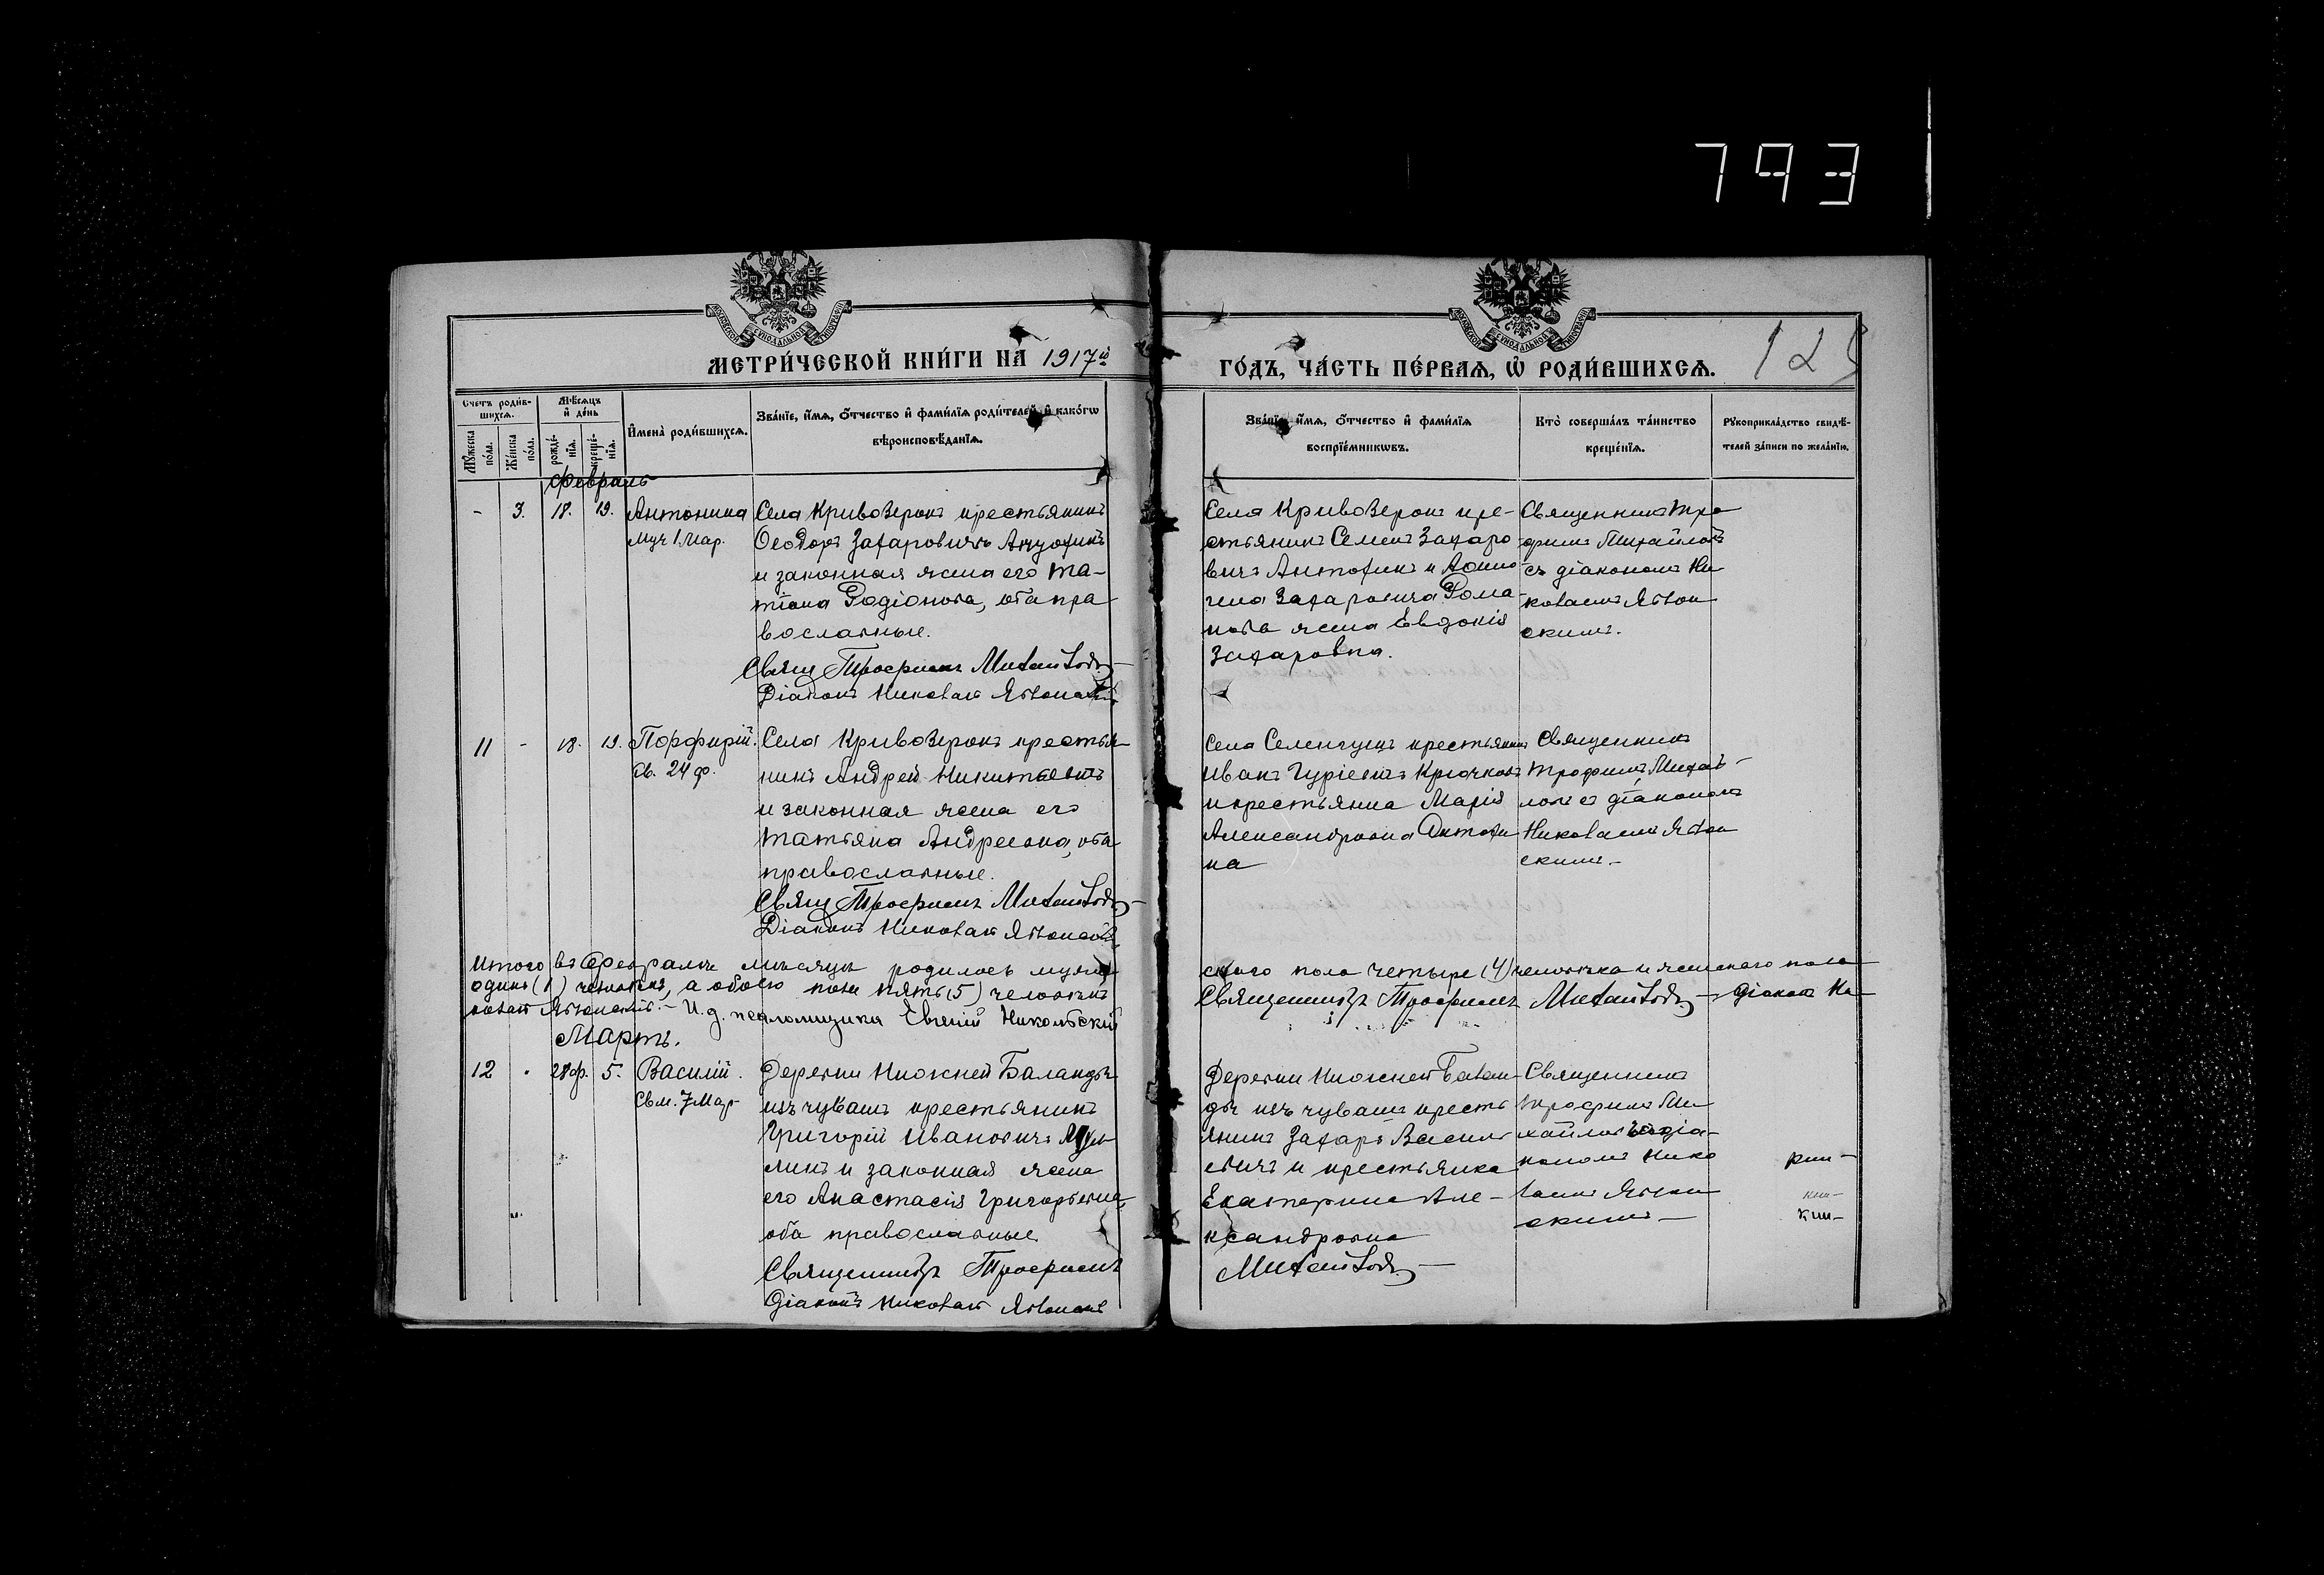 793
МЕТРИ́ЧЕСКОЙ КНИ́ГИ НА 1917й
ГО́ДЪ, ЧА́СТЬ ПЕ́РВАЯ, Ѡ РОДИ́ВШИХСЯ.
Счетъ роди́в-
шихся.
Мѣ́сяцъ
и҆ де́нь
Мꙋ́жеска
по́ла.
Же́нска
по́ла.
рожде́-
нїѧ.
креще́-
нїѧ.
И҆мена̀ роди́вшихсѧ.
Зва́нїе, и҆́мѧ, о҆́тчество и҆ фами́лїѧ роди́телей, и҆ како́гѡ
вѣроисповѣ́данїѧ.
Зва́нїе, и҆́мѧ, о҆́тчество и҆ фами́лїѧ
воспрїе́мникѡвъ.
Кто̀ соверша́лъ та́инство
креще́нїѧ.
Рꙋкоприкла́дство свидѣ́-
телей за́писи по жела́нїю.
Февраль
- 3. 18. 19.
Антонина
муч 1 Мар.
Села Кривозерокъ крестьянинъ
Ѳеодоръ Захаровичъ
и законная жена его Та-
тіана Родіонова, оба пра
вославные.
Свящ Трофимъ Михайловъ
Діаконъ Николай Яблонскій
Села Кривозерокъ кре-
стьянинъ Семенъ Захаро
вичъ Антохинъ и
Захаровича Рома-
нова жена Евдокія
Захаровна.
Священникъ Тро
фимъ Михайловъ
съ діакономъ Ни
колаемъ Яблон
скимъ.
11 - 18. 19.
Порфирій.
св. 24 ф.
Села Кривозерокъ крестья
нинъ Андрей Никитаевичъ
и законная жена его
Татьяна Андреевна, оба
православные.
Свящ Трофимъ Михайловъ
Діаконъ Николай Яблонскій
Села Селенгушъ крестьянинъ
Иванъ Гуріевичъ Крючковъ
и крестьянка Марія
Александровна Антохи
на
Священникъ
Трофимъ Михай-
ловъ съ діакономъ
Николаемъ Яблон
скимъ.-
Итого въ Февралѣ мѣсяцѣ родилось муже
скаго пола четыре (4) человѣка и женскаго пола
одинъ (1) человѣкъ, а обоего пола пять (5) человѣкъ
Священникъ Трофимъ Михайловъ - Діаконъ Ни
колай Яблонскій.- И. д. псаломщика Евгеній Никольскій
Мартъ.
12 - 28 ф. 5.
Василій.
Свм. 7 Мар-
Деревни Нижней Баланды
изъ чувашъ крестьянинъ
Григорій Ивановичъ
и законная жена
его Анастасія Григорьевна,
оба православные
Священникъ Трофимъ
Діаконъ Николай Яблонскій
Деревни Нижней Балан-
ды изъ чувашъ кресть
янинъ Захаръ Василь
евичъ и крестьянка
Екатерина Але-
ксандровна
Михайловъ
Священникъ
Трофимъ Ми
хайловъ съ діа-
кономъ Нико
лаемъ Яблон
скимъ-